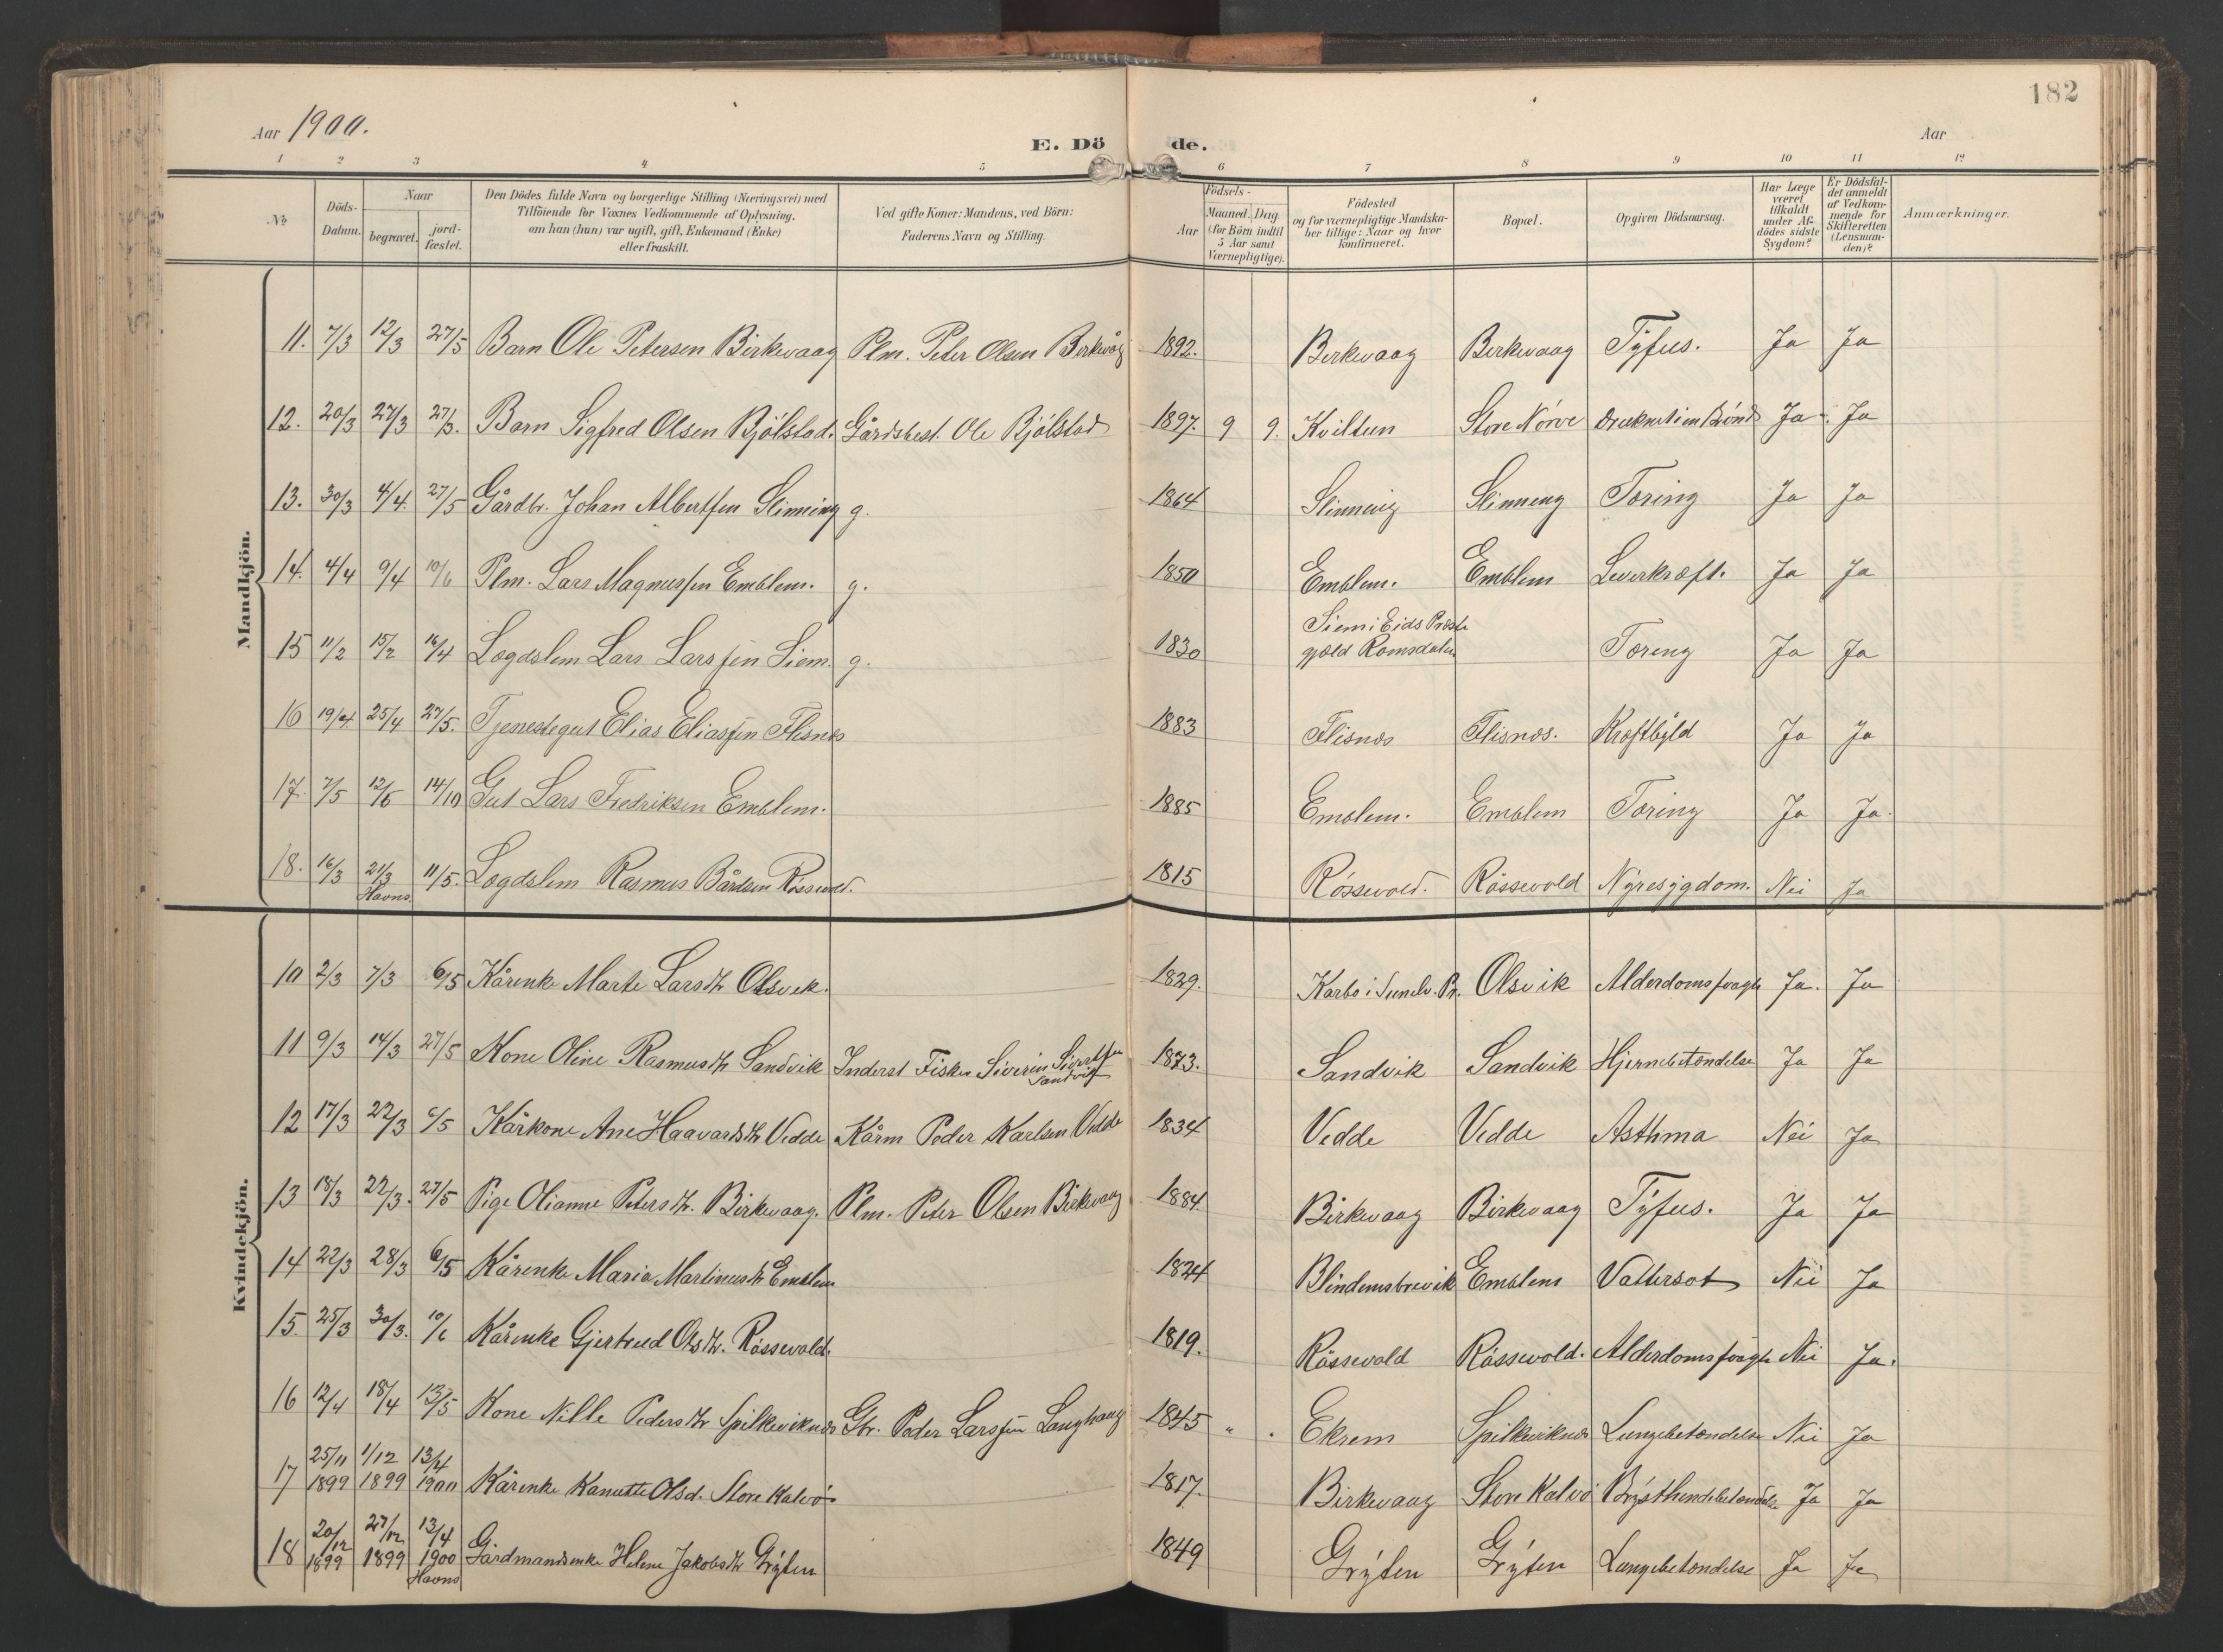 182
Aar 1900.
E. Dö de.
Aar
1 2 3 4 5 6 7 8 9 10 11 12
№
Döds-Datum.
Naar
begravet.
jord-fæstet.
Den Dödes fulde Navn og borgerlige Stilling (Næringsvei) med
Tilföiende for Voxnes Vedkommende af Oplysning,
om han (hun) var ugift, gift, Enkemand (Enke)
eller fraskilt.
Ved gifte Koner: Mandens, ved Börn:
Faderens Navn og Stilling.
Födsels-
Aar
Maaned. Dag.
(for Börn indtil
5 Aar samt
Værnepligtige).
Födested
og for værnepligtige Mandska-
ber tillige: Naar og hvor
konfirmeret.
Bopæl.
Opgiven Dödsaarsag.
Har Læge
været
tilkaldt
under Af-
dödes sidste
Sygdom?
Er Dödsfal-
det anmeldt
af Vedkom-
mende for
Skifteretten
(Lensman-
den)?
Anmærkninger.
Mandkjön.
11. 7/3 12/3 27/5 Barn Ole Petersen Birkevaag Plm. Peter Olsen Birkevåg 1892. Birkevaag Birkevaag Tyfus. Ja Ja
12. 20/3 27/3 27/3. Barn Sigfred Olsen Bjölstad. Gårdsbest. Ole Bjölstad 1897. 9 9. Kviltun Store Nörve Druknet i en Brönd Ja Ja
13. 30/3 4/4. 27/5 Gårdbr. Johan Albertsen Slinning g. 1864 Slinning Slinning Tæring Ja Ja
14. 4/4 9/4 10/6 Plm. Lars Magnussen Emblem. g. 1850 Emblem. Emblem Leverkræft. Ja Ja
15 11/2 15/2 16/4 Lægdslem Lars Larssen Siem. g. 1830 Siem i Eids Præste
gjæld Romsdalen Tæring Ja Ja
16 19/4. 25/4 27/5. Tjenestegut Elias Eliassen Flisnes 1883 Flisnes Flisnes. Kræftbyld Ja Ja
17. 7/5 12/5 14/10 Gut Lars Fredriksen Emblem. 1885 Emblem. Emblem Tæring Ja Ja.
18. 16/3 21/3 11/5. Lægdslem Rasmus Bårdsen Rössevold. 1815 Rössevold. Rössevold Nyresygdom. Nei Ja
Havns.
Kvindekjön.
10 2/3 7/3 6/5 Kårenke Marte Larsdtr Olsvik. 1829. Karbö i Sunelv. Pr. Olsvik Alderdomssvagh Ja. Ja
11 9/3 14/3 27/5 Kone Oline Rasmusdtr Sandvik Inderst Fisker Siverin Sivertsen
Sandvik 1873. Sandvik Sandvik Hjernebetændelse Ja Ja
12 17/3 22/3 6/5 Kårkone Ane Haavardsdtr Vedde Kårm Peder Karlsen Vedde 1834 Vedde Vedde Asthma Nei Ja
13 18/3 22/3. 27/5 Pige Olianne Petersdtr. Birkevaag. Plm. Peter Olsen Birkevaag 1884. Birkevaag Birkevaag Tyfus. Ja Ja
14 22/3 28/3 6/5 Kårenke Maria Martinusdtr Emblem 1824 Blindemsbrevik Emblem Vattersot Nei Ja
15. 25/3 30/3. 10/6 Kårenke Gjertrud Olsdtr. Rössevold. 1819. Rössevold Rössevold. Alderdomssvagh Nei Ja.
16 12/4 18/4 13/5 Kone Nille Pedersdtr Spilkeviknes Gbr. Peder Larssen Langhaug 1845 " . Ekrem Spilkeviknes Lungebetændelse Nei Ja
17 25/11 1/12 13/4
1899 1899 1900 Kårenke Kanutte Olsd. Store Kalvö. 1817. Birkevaag Store Kalvö Brysthindebetændelse Ja Ja
18 20/12 27/12 13/4
1899 1899 1900 Gårdmandsenke Helene Jakobsdtr Gryten 1849 Gryten Gryten Lungebetændelse Ja Ja
Havns